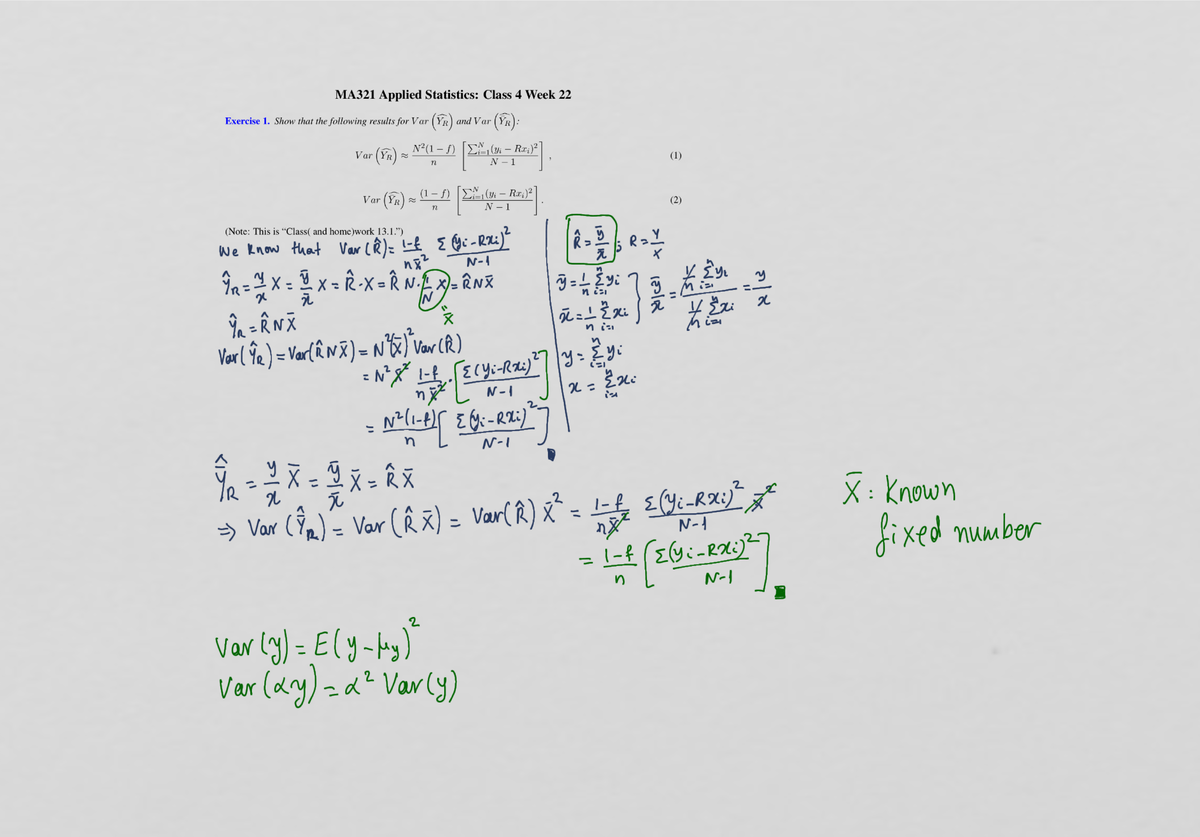 MA321 Applied Statistics: Class 4 Week 22
Exercise 1. Show that the following results for Var (\widehat{Y_R}) and Var (\widehat{\bar{Y}_R}):
Var (\widehat{Y_R}) ≈ \frac{N²(1 − f)}{n} [\frac{∑_{i=1}^{N}(y_i − Rx_i)²}{N − 1}], (1)
Var (\widehat{\bar{Y}_R}) ≈ \frac{(1 − f)}{n} [\frac{∑_{i=1}^{N}(y_i − Rx_i)²}{N − 1}]. (2)
(Note: This is “Class( and home)work 13.1.”)
We know that Var(R̂) = \frac{1-f}{n x̄²} \frac{Σ(yi-Rxi)²}{N-1}
Ŷ_R = \frac{y}{x} X = \frac{ȳ}{x̄} X = R̂·X = R̂ N·\frac{1}{N} X = R̂NX̄
" X̄
Ŷ_R = R̂NX̄
Var(Ŷ_R) = Var(R̂NX̄) = N²(X̄)² Var(R̂)
= N² X̄² \frac{1-f}{n X̄²} · [\frac{Σ(yi-Rxi)²}{N-1}]
= \frac{N²(1-f)}{n} [\frac{Σ(yi-Rxi)²}{N-1}]
R̂ = \frac{ȳ}{x̄} ; R = \frac{Y}{X}
ȳ = \frac{1}{n} Σ_{i=1}^{n} yi
x̄ = \frac{1}{n} Σ_{i=1}^{n} xi
} \frac{ȳ}{x̄} = \frac{1/n Σ_{i=1}^{n} yi}{1/n Σ_{i=1}^{n} xi} = \frac{y}{x}
y = Σ_{i=1}^{n} yi
x = Σ_{i=1}^{n} xi
\hat{\bar{Y}}_R = \frac{y}{x} X̄ = \frac{ȳ}{x̄} X̄ = R̂ X̄
⇒ Var(\hat{\bar{Y}}_R) = Var(R̂ X̄) = Var(R̂) X̄² = \frac{1-f}{n X̄²} \frac{Σ(yi-Rxi)²}{N-1} X̄²
= \frac{1-f}{n} [\frac{Σ(yi-Rxi)²}{N-1}]
X̄ : Known
fixed number
Var(y) = E(y-μ_y)²
Var(αy) = α² Var(y)